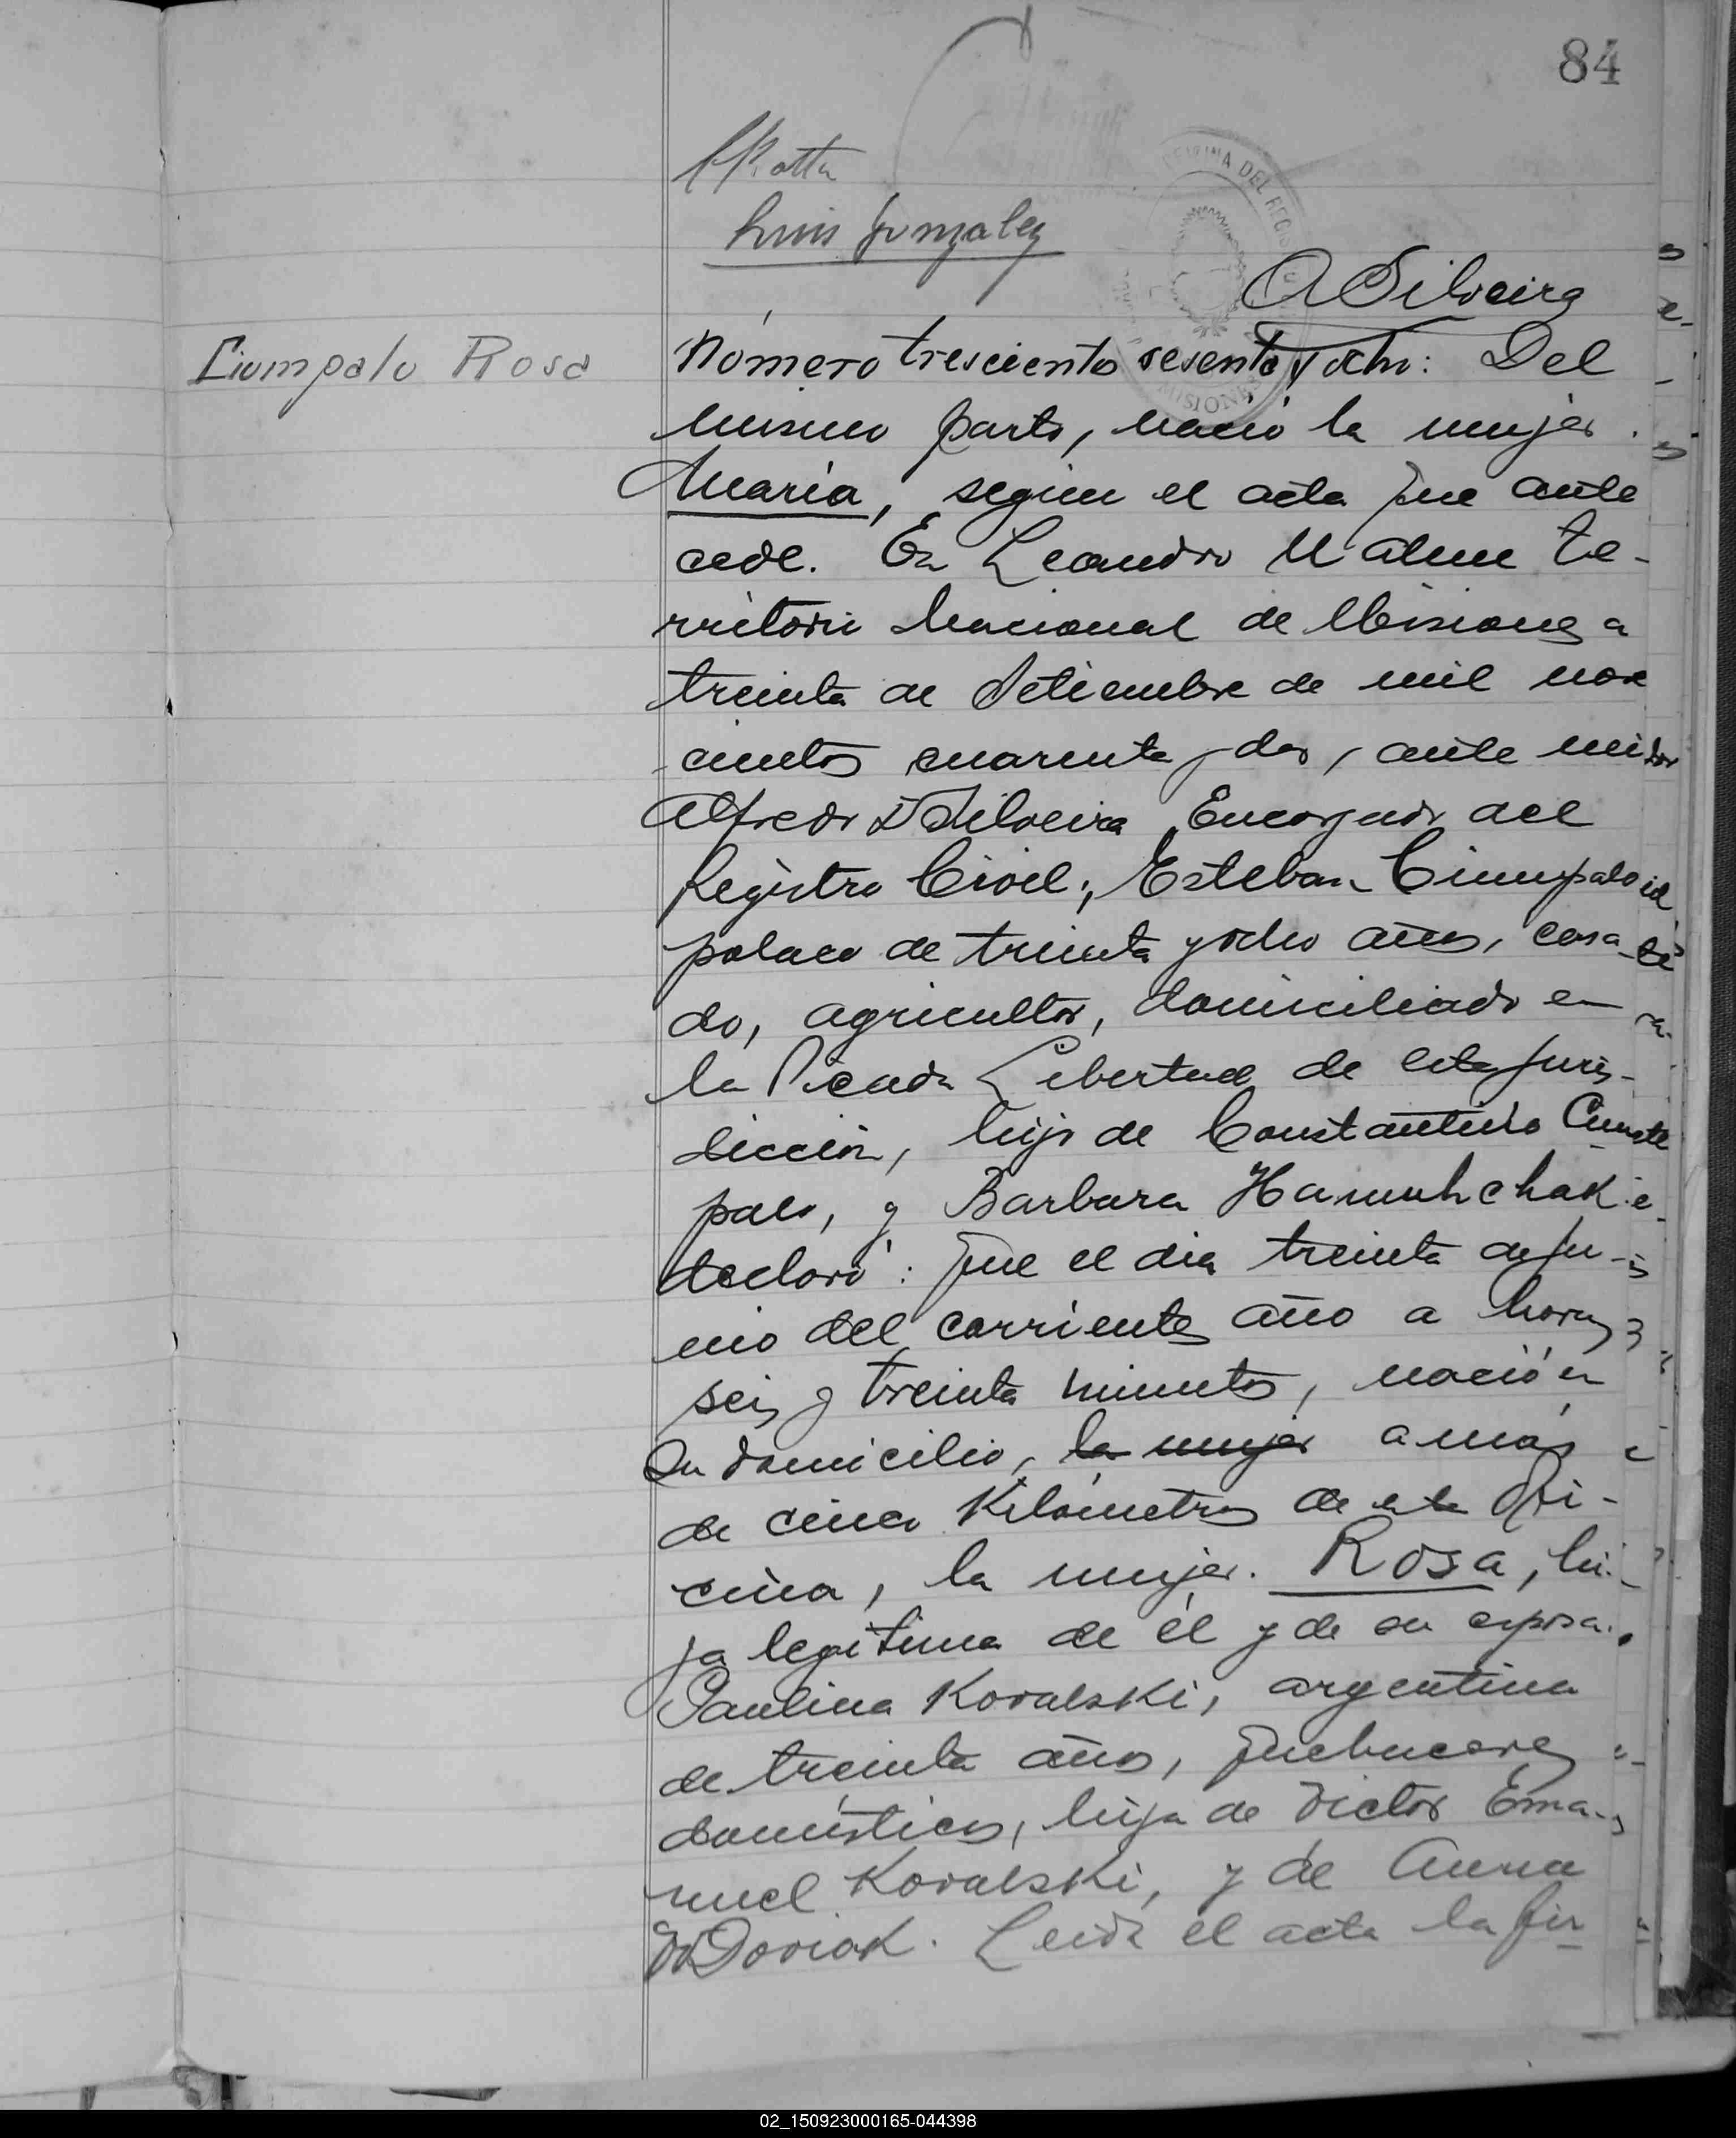 84
Luis Gonzalez
OFICINA DEL REGIS
MISIONES
A Silveira
Ciompalo Rosa
Número trescientos sesenta y ocho: Del
mismo parto, nació la mujer
María, según el acta que ante
cede. En Leandro N Alem te-
rritorio Nacional de Misiones a
treinta de Setiembre de mil nove
cientos cuarenta y dos, ante mi
Alfredo D Silveira Encargado del
Registro Civil; Esteban Ciumpalo
polaco de treinta y ocho años, casa-
do, agricultor, domiciliado en
la Picada Libertad de esta juris-
dicción, hijo de Constantino Cium
palo, y Barbara Hamuhchak
declaró: que el dia treinta de ju-
nio del corriente año a horas
seis y treinta minutos, nació en
su domicilio, la mujer a más
de cinco Kilómetros de esta Ofi-
cina, la mujer. Rosa, hi-
ja legítima de él y de su esposa
Paulina Kovalski, argentina
de treinta años, quehaceres
domésticos, hija de Victor Ema-
nuel Kovalski, y de Anna
Doviak. Leida el acta la fir
02_150923000165-044398